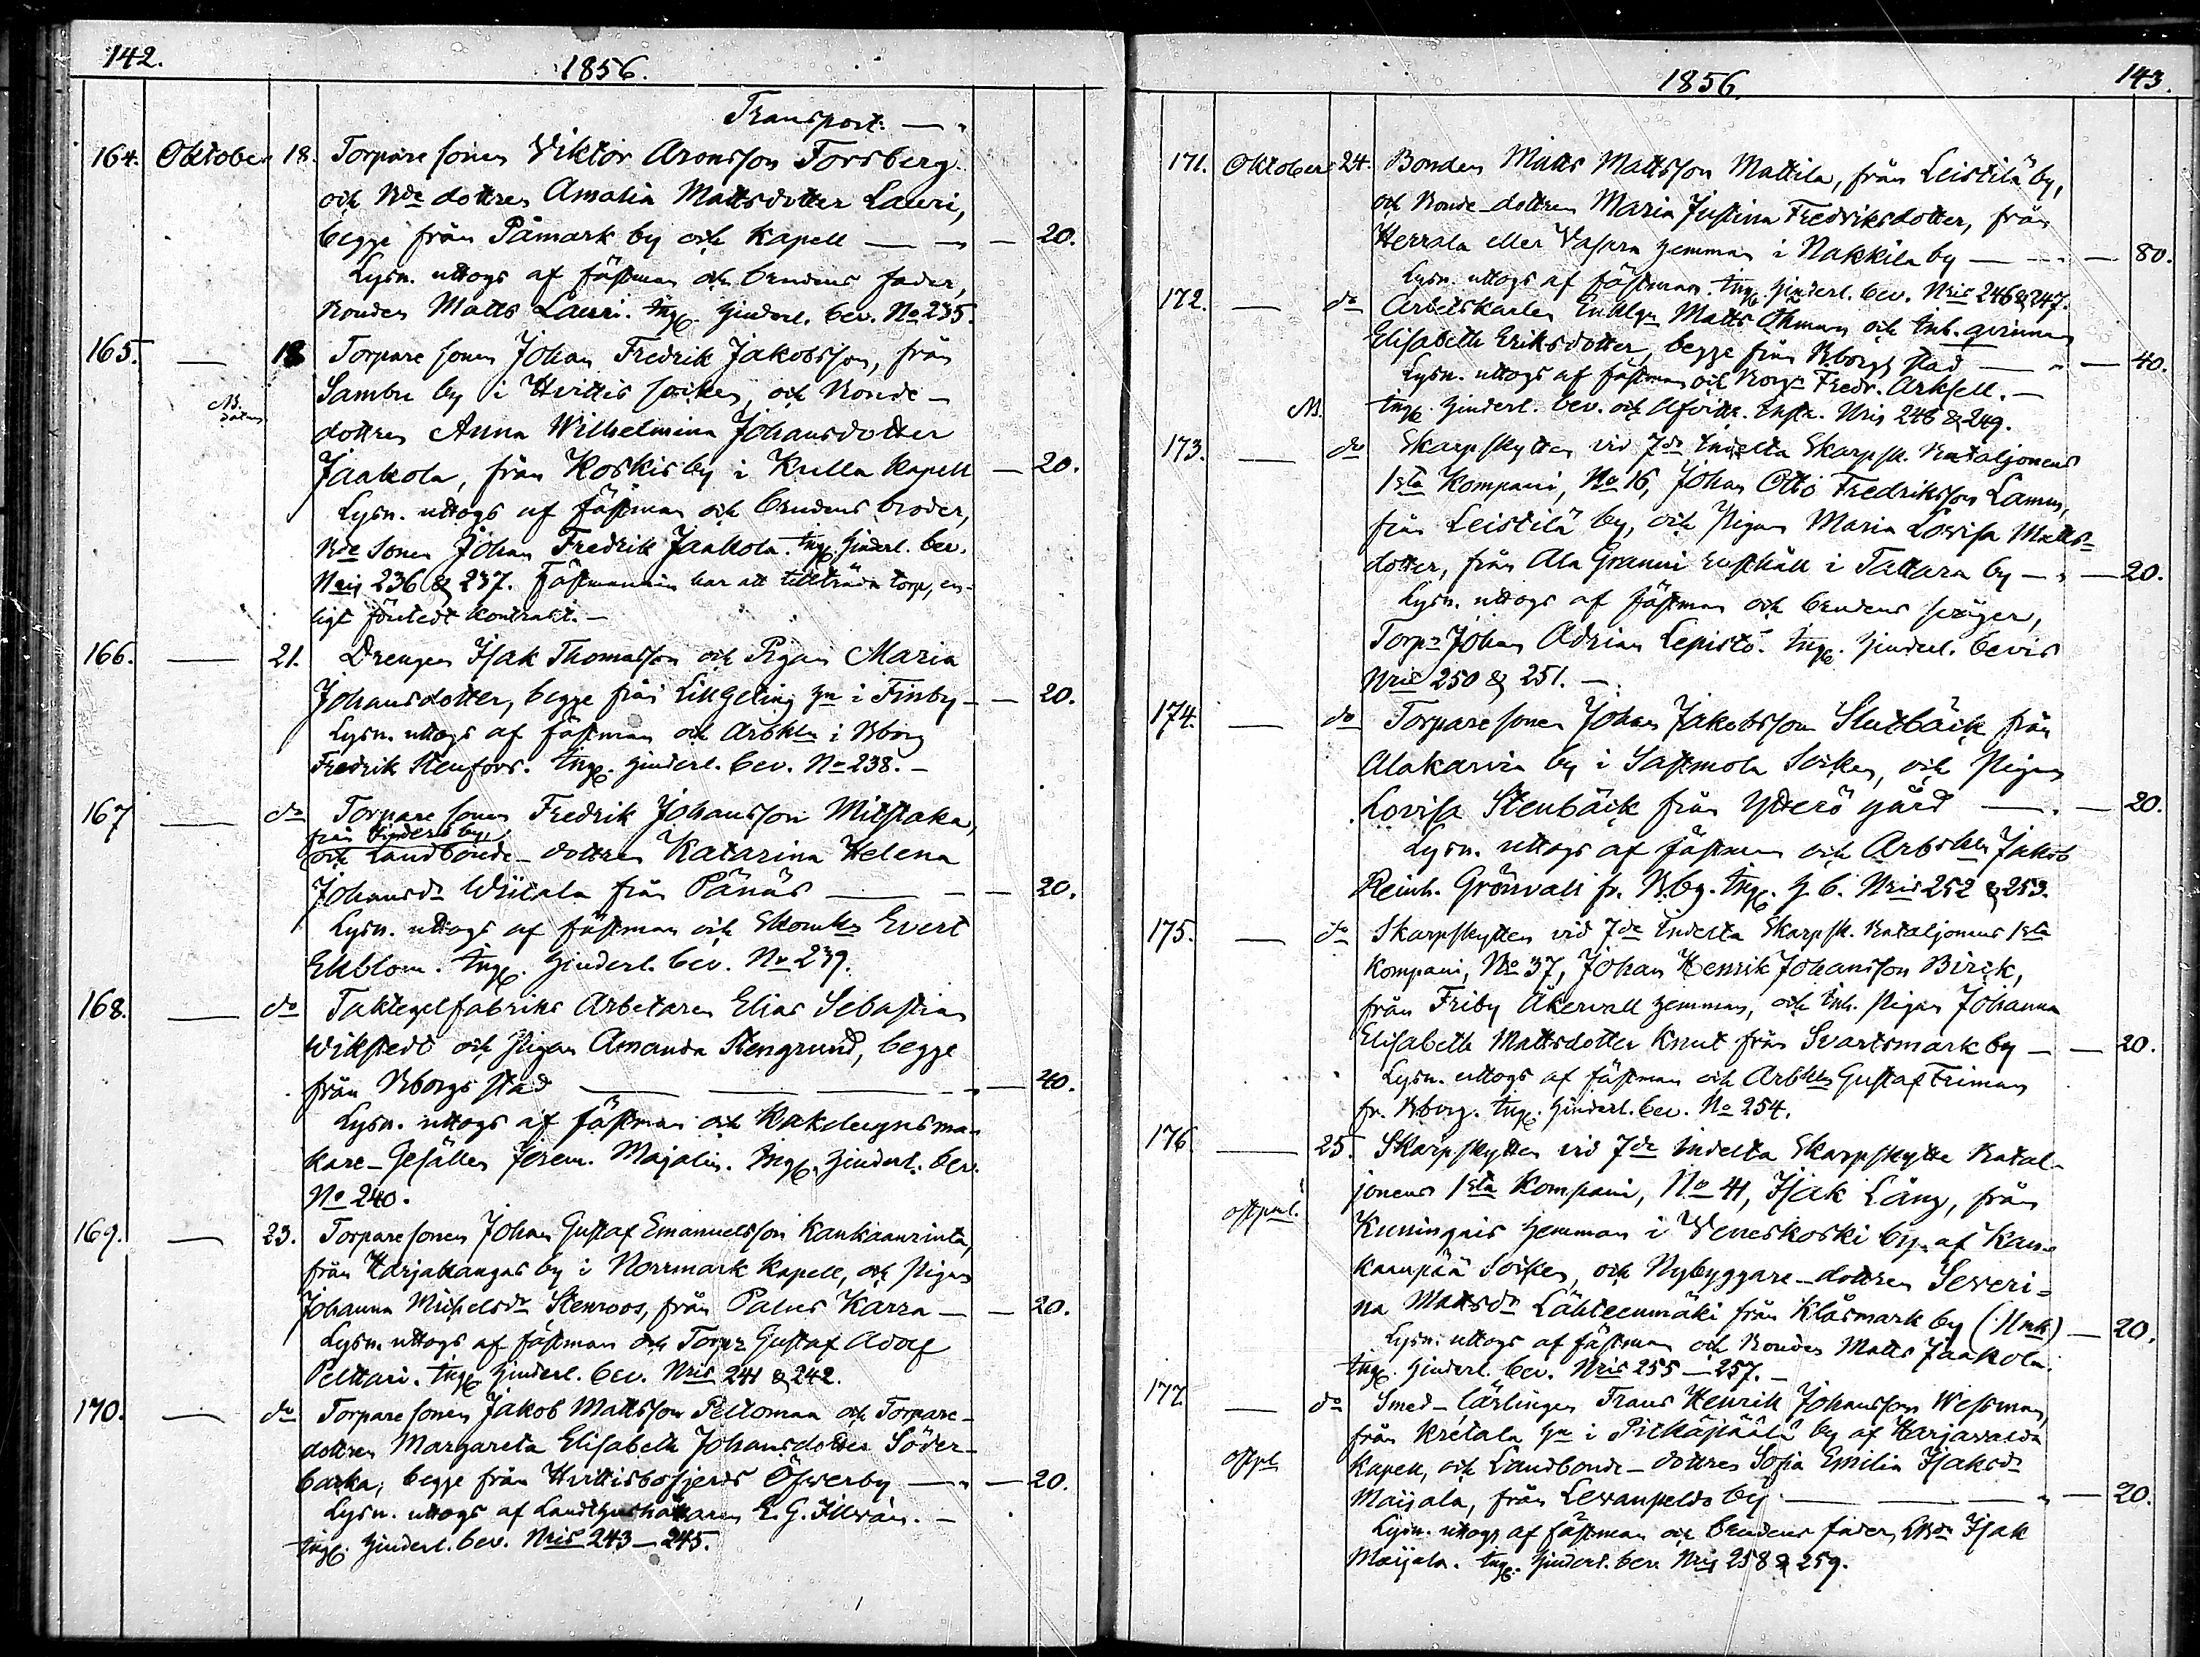 142.
1856.
Transport: — "
164. Oktober 18. Torpare sonen Viktor Aronsson Forsberg
och Bde dottren Amalia Mattsdotter Lauri,
begge från Påmark by och Kapell — " — 20.
Lysn. uttogs af fästman och brudens fader,
Bonden Matts Lauri. Ingf. Hinderl. bev. No 235.
165. — 18 Torpare sonen Johan Fredrik Jakobsson, från
Sambu by i Hvittis socken, och Bonde-
NB.
dottren Anna Wilhelmina Johansdotter
Jaakola, från Koskis by i Kulla Kapell — 20.
Lysn. uttogs af fästman och brudens broder,
Bde Sonen Johan Fredrik Jaakola. Ingf. Hinderl. bev.
Nris 236 & 237. Fästmannen har att tillträda torp, en-
ligt företedt Kontrakt. —
166. — 21. Drengen Isak Thomasson och Pigan Maria
Johansdotter, begge från Likgeling hn i Finby — — 20.
Lysn. uttogs af fästman och Arbkln i Bborg
Fredrik Stenfors. Ingf. Hinderl. bev. No 238. —
167 — do Torpare sonen Fredrik Johansson Mitstaka,
från Hinders by,
och Landbonde-dottren Katarina Helena
Johansdr Wiitala från Pänäs — — — 20.
Lysn. uttogs af fästman och Skomkr Evert
Ekblom. Ingf. Hinderl. bev. No 239.
168. — do Taktegelfabriks Arbetaren Elias Sebastian
Wikstedt och Pigan Amanda Stengrund, begge
från Bborgs stad — — — 40.
Lysn. uttogs af fästman och Kakelugnsma-
kare-Gesällen Jerem. Majalin. Ingf. Hinderl. bev.
No 240.
169. — 23. Torpare sonen Johan Gustaf Emanuelsson Kankaanrinta,
från Harjakangas by i Norrmark Kapell, och Pigan
Johanna Michelsdr Stenroos, från Palus Karra — — 20.
Lysn. uttogs af fästman och Torpr Gustaf Adolf
Pelttari. Ingf. Hinderl. bev. Nris 241 & 242.
170. — do Torpare sonen Jakob Mattsson Peltomaa och Torpare-
dottren Margareta Elisabeth Johansdotter Söder-
backa, begge från Hvittisbofjerds Öfverby — " — 20.
Lysn. uttogs af Landthushållaren E. G. Illvän. —
Ingf. Hinderl. bev. Nris 243 — 245.
1856.
143.
171. Oktober 24. Bonden Matts Mattsson Mattila, från Leistilä by,
och Bonde-dottren Maria Justina Fredriksdotter, från
Herrala eller Vasara hemman i Nakkila by — — 80.
Lysn. uttogs af fästman. Ingf. Hinderl. bev. Nris 246 & 247.
172. — do Arbetskarlen Enklgn Matts Öhman och Inh. qvinnan
Elisabeth Eriksdotter, begge från Bborgs stad — " — 40.
Lysn. uttogs af fästman och Borgn Fredr. Arksell. —
NB. Ingf. Hinderl. bev. och Afvittr. Instr. Nris 248 & 249.
173. — do Skarpskytten vid 7de Indelta Skarpsk. Bataljonens
1sta Kompani, No 16, Johan Otto Fredriksson Lamm,
från Leistilä by, och Pigan Maria Lovisa Matts-
dotter, från Ala Granni rusthåll i Tattara by — " — 20.
Lysn. uttogs af fästman och brudens svåger,
Torpr Johan Adrian Lepistö. Ingf. Hinderl. bevis
Nris 250 & 251. —
174. — do Torpare sonen Johan Jakobsson Slutbäck från
Alakarvia by i Sastmola Socken, och Pigan
Lovisa Stenbäck från Ytterö gård — — 20.
Lysn. uttogs af fästman och Arbskln Jakob
Reinh. Grönvall fr. Bbg. Ingf. H. b. Nris 252 & 253.
175. — do Skarpskytten vid 7de Indelta Skarpsk. Bataljonens 1sta
Kompani, No 37, Johan Henrik Johansson Birck,
från Friby Åkervall hemman, och Inh. Pigan Johanna
Elisabeth Mattsdotter Knut från Svartsmark by — — 20.
Lysn. uttogs af fästman och Arbkln Gustaf Friman
fr. Bborg. Ingf. Hinderl. bev. No 254.
176. — 25. Skarpskytten vid 7de Indelta Skarpskytte Batal-
jonens 1sta Kompani, No 41, Isak Lång, från
Kuningnis hemman i Veneskoski by af Kan-
kaanpää Socken, och Nybyggare-dottren Severi-
na Mattsdr Lähteenmäki från Klåsmark by (Nmk) — 20.
Lysn. uttogs af fästman och Bonden Matts Jaakola.
Ingf. Hinderl. bev. Nris 255 — 257. —
177. — do Smed-lärlingen Frans Henrik Johansson Wessman,
från Kretala hn i Pitkäpäälä by af Harjavalda
Kapell, och Landbonde-dottren Sofia Emilia Isaksdr
Maijala, från Levanpelds by — — " — 20.
Lysn. uttogs af fästman och brudens fader, LBdn Isak
Maijala. Ingf. Hinderl. bev. Nris 258 & 259.